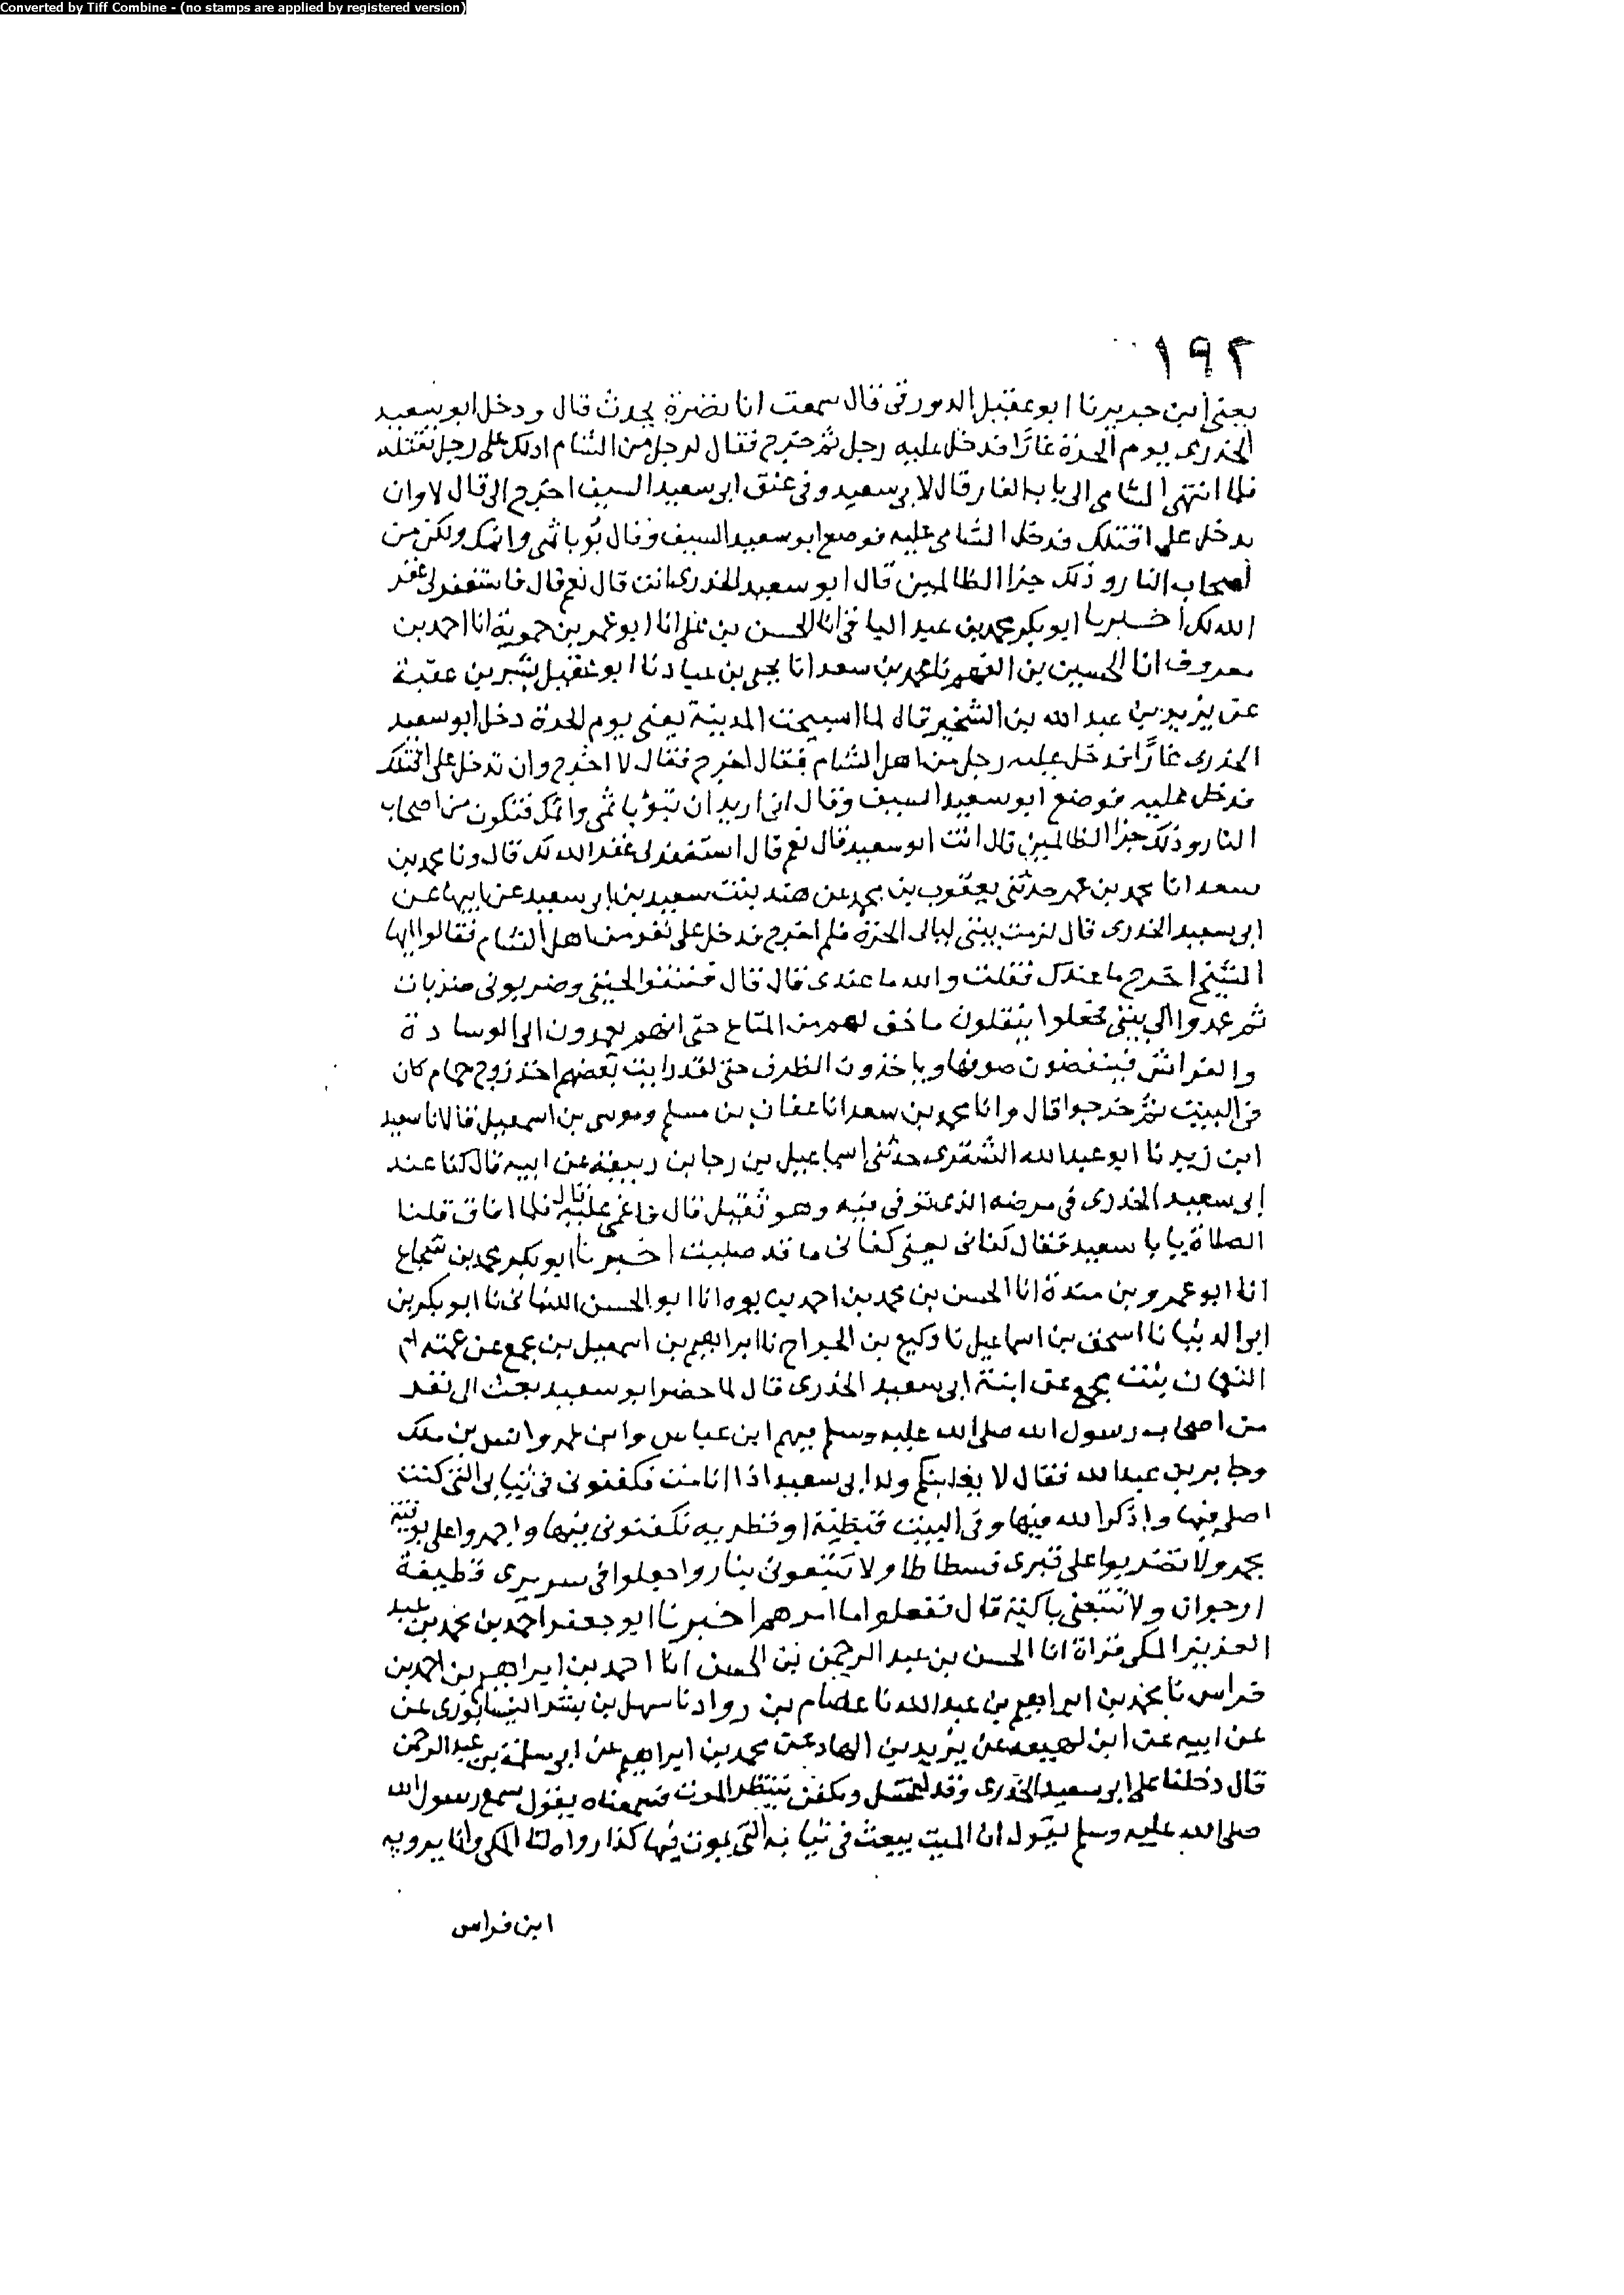 Converted by Tiff Combine - (no stamps are applied by registered version)
١٩٢
يعنى ابن جرير نا ابو عقيل الدورقى قال سمعت انا نضرة يحدث قال ودخل ابو سعيد
الخدرى يوم الحرة غارًا فدخل عليه رجل ثم خرج فقال لرجل من الشام ادلك على رجل تقتله
فلما انتهى الشامى الى باب الغار قال لابى سعيد وفى عنق ابى سعيد السيف اخرج الى قال لا وان
تدخل على اقتلك فدخل الشامى عليه فوضع ابو سعيد السيف وقال بُو باثمى واثمك ولكن من
اصحاب النار وذلك جزا الظالمين قال ابو سعيد الخدرى انت قال نعم قال فاستغفر لى غفر
الله لك اخبرنا ابو بكر محمد بن عبد الباقى انا الحسن بن على انا ابو عمر بن حموية انا احمد بن
معروف انا الحسين بن الفهم نا محمد بن سعد انا يحيى بن عباد نا ابو عقيل بشير بن عقبة
عن يزيد بن عبد الله بن الشخير قال لما اسبيحت المدينة يعنى يوم الحرة دخل ابو سعيد
الخدرى غارًا فدخل عليه رجل من اهل الشام فقال اخرج فقال لا اخرج وان تدخل على اقتلك
فدخل عليه فوضع ابو سعيد السيف وقال انى اريد ان تبؤ باثمى واثمك فتكون من اصحاب
النار وذلك جزا الظالمين قال انت ابو سعيد قال نعم قال استغفر لى غفر الله لك قال ونا محمد بن
سعد انا محمد بن عمر حدثنى يعقوب بن محمد عن هند بنت سعيد بن ابى سعيد عن ابيها عن
ابى سعيد الخدرى قال لزمت بيتى ليالى الحرة فلم اخرج فدخل على نفر من اهل الشام فقالوا ايها
الشيخ اخرج ما عندك فقلت والله ما عندى قال قال فنتفوا لحيتى وضربونى ضربات
ثم عمدوا الى بيتى فجعلوا ينقلون ما خف لهم من المتاع حتى انهم يعمدون الى الوسادة
والفراش فينفضون صوفها وياخذون الظرف حتى لقد رايت بعضهم اخذ زوج حمام كان
فى البيت ثم خرجوا قال وانا محمد بن سعد انا عفان بن مسلم وموسى بن اسمعيل قالا نا سعيد
ابن زيد نا ابو عبد الله الشقرى حدثنى اسماعيل بن رجا بن ربيعة عن ابيه قال كنا عند
ابى سعيد الخدرى فى مرضه الذى توفى فيه وهو ثقيل قال فاغمى عليه قال فلما افاق قلنا
الصلاة يا با سعيد فقال كفانى يعنى كفانى ما قد صليت اخبرنا ابو بكر محمد بن شجاع
انا ابو عمرو بن مندة انا الحسن بن محمد بن احمد بن يوه انا ابو الحسن اللنبانى نا ابو بكر بن
ابى الدنيا نا اسحق بن اسماعيل نا وكيع بن الجراح نا ابراهيم بن اسمعيل بن مجمع عن عمته ام
النعمان بنت مجمع عن ابنة ابى سعيد الخدرى قال لما حضر ابو سعيد بعث الى نفر
من اصحاب رسول الله صلى الله عليه وسلم فيهم ابن عباس وابن عمر وانس بن ملك
وجابر بن عبد الله فقال لا يغلبنكم ولد ابى سعيد اذا انا مت فكفنونى فى ثيابى التى كنت
اصلى فيها واذكر الله فيها وفى البيت قبطية او قطريه فكفنونى فيها واجمروا على بوقية
مجمر ولا تضربوا على قبرى فسطاطا ولا تتبعونى بنار واجعلوا فى سريرى قطيفة
ارجوان ولا تتبعنى باكية قال ففعلوا ما امرهم اخبرنا ابو جعفر احمد بن محمد بن عبد
العزيز المكى قراة انا الحسن بن عبد الرحمن بن الحسن انا احمد بن ابراهيم بن احمد بن
فراس نا محمد بن ابراهيم بن عبد الله نا عصام بن رواد نا سهل بن بشر النيسابورى عن
عن ابيه عن ابن لهيعه عن يزيد بن الهاد عن محمد بن ابراهيم عن ابى سلمة بن عبد الرحمن
قال دخلنا على ابى سعيد الخدرى وقد اغتسل وتكفن ينتظر الموت فسمعناه يقول سمع رسول الله
صلى الله عليه وسلم يقول ان الميت يبعث فى ثيابه التى يموت فيها كذا رواه لنا المكى وانا يرويه
ابن فراس